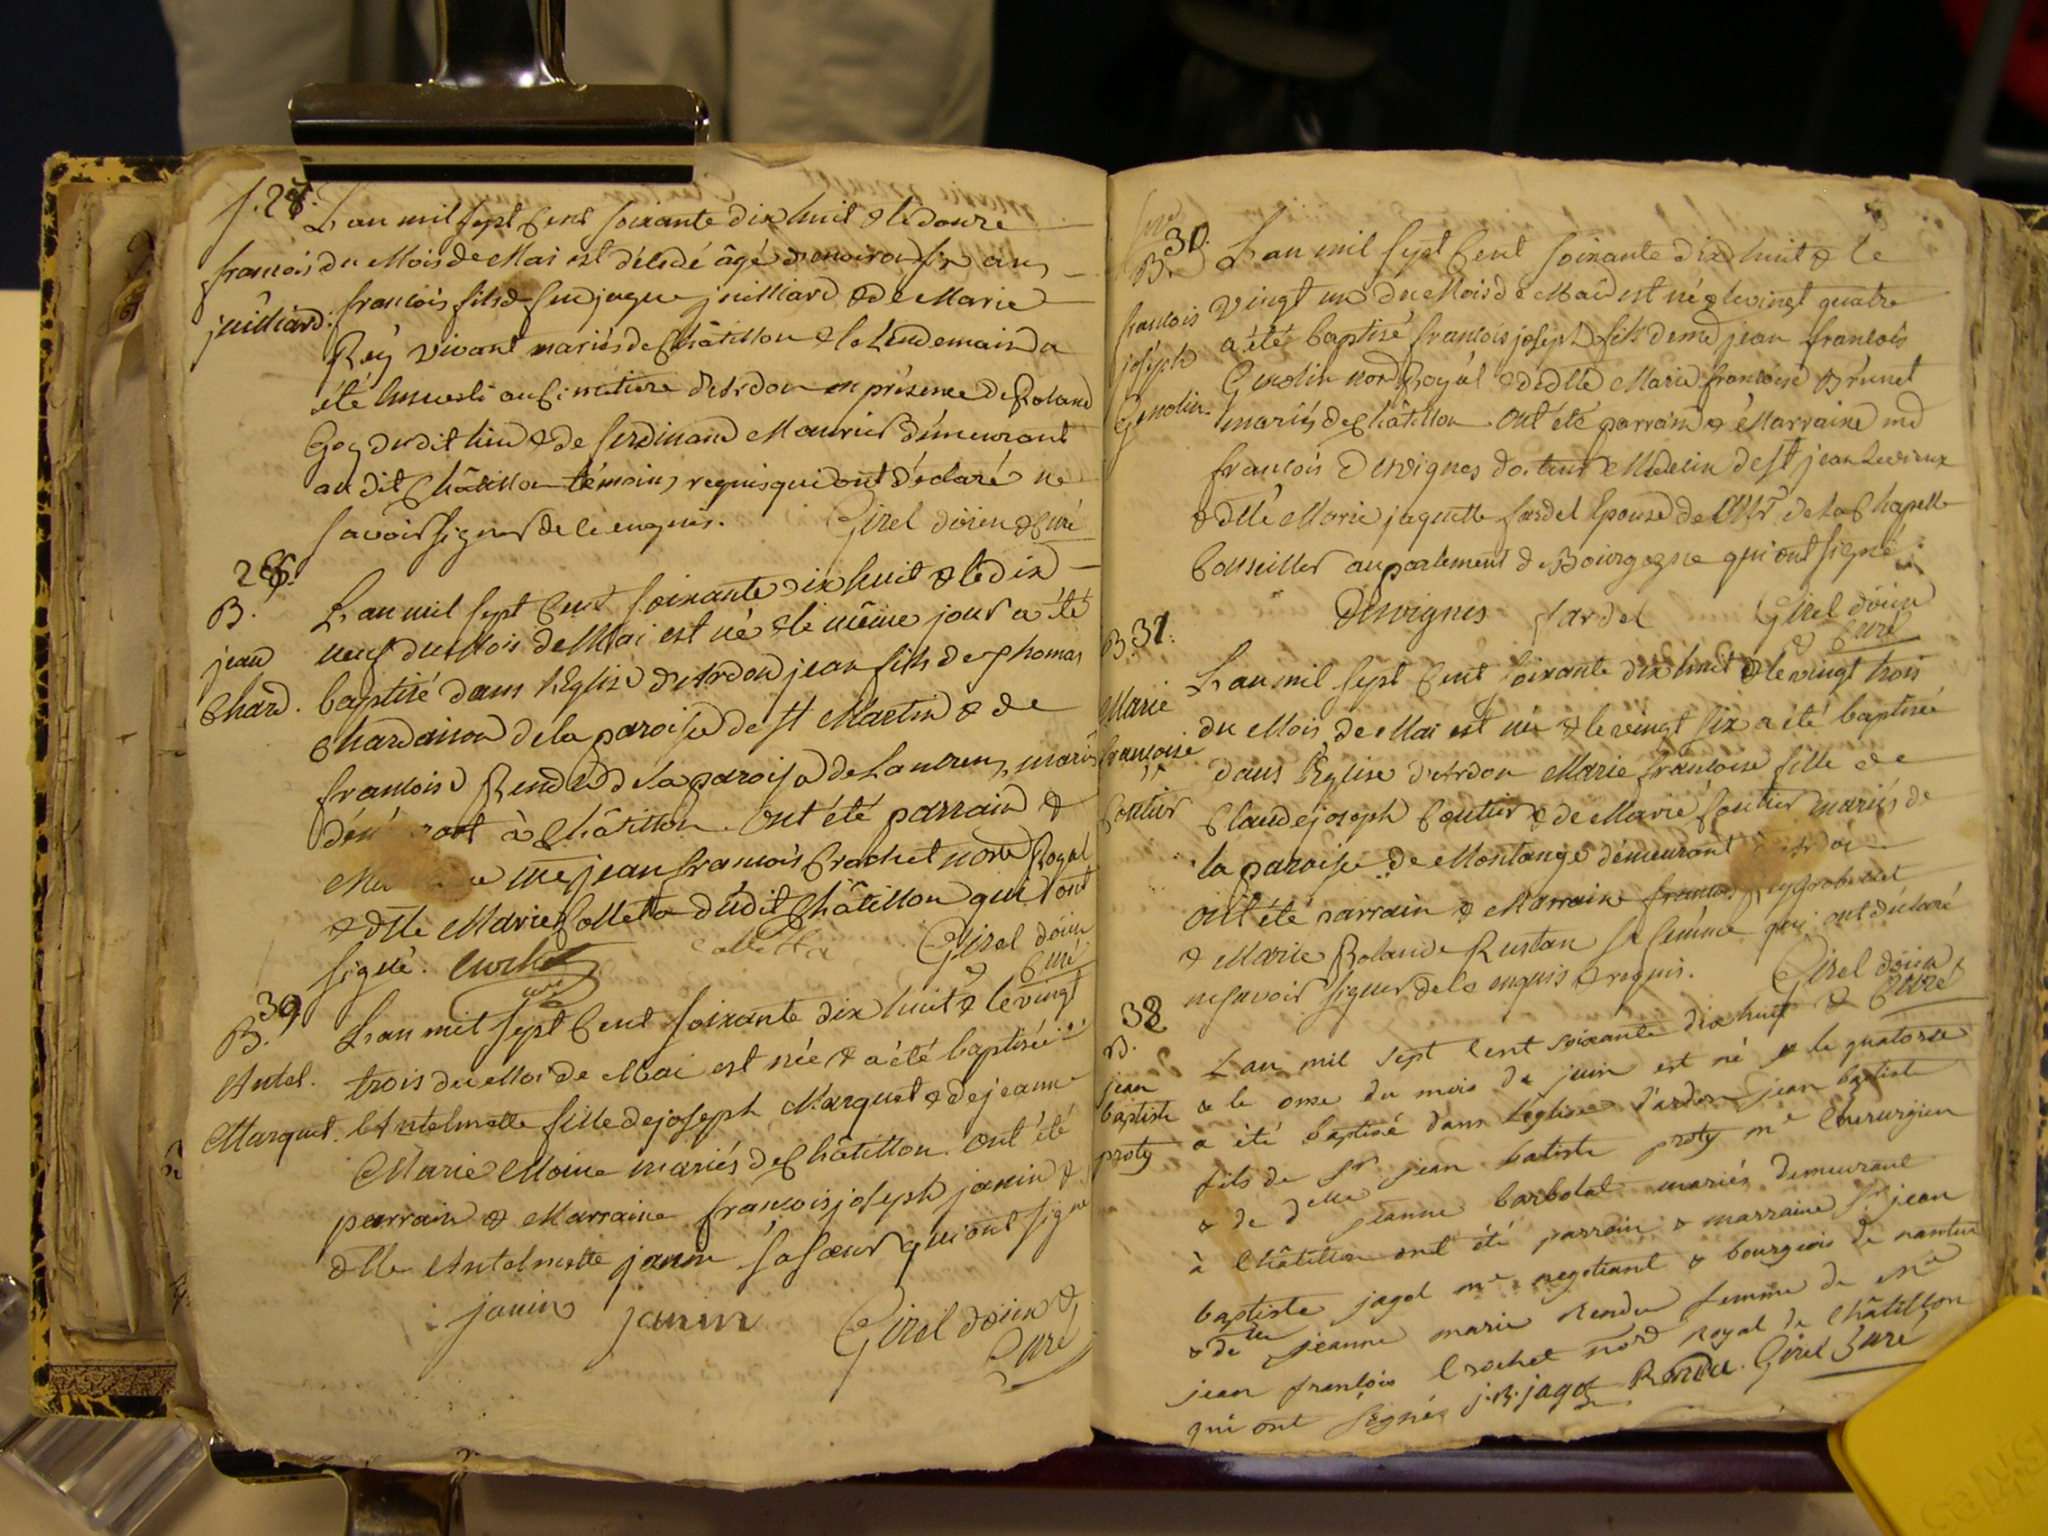 f. 28.
L'an mil sept cent soixante dix huit & le douze
françois
juilliard.
du Mois de Mai est décédé âgé d'environ six ans
françois fils de feu jaque juilliard & de Marie
Rey vivant mariés de Châtillon & le Lendemain a
été inhumé au Cimétière d'Ardon en présence de Roland
Goy dudit lieu & de ferdinand Maurier démeurant
au dit Châtillon témoins requis qui ont déclaré ne
savoir signer de ce enquis. Girel doien & Curé
28.
B.
jean
Chard.
L'an mil sept Cent soixante dix huit & le dix
neuf du Mois de Mai est né & le même jour a été
baptisé dans l'Eglise d'Ardon jean fils de Thomas
Chardaison de la paroisse de St Martin & de
françoise Rendu de la paroisse de Lancrens mariés
à Châtillon. Ont été parrain &
me jean françois Crochet nore Royal
& dlle Marie Colletta dudit Châtillon qui ont
signé. Crochet Colletta Girel doien
& Curé
39
B.
Antel.
Marquet.
L'an mil sept Cent soixante dix huit & le vingt
trois du Moi de Mai est née & a été baptisée
Antelmette fille de joseph Marquet & de jeanne
Marie Moine mariés de Châtillon. Ont été
parrain & Marraine françois joseph janin &
dlle Antelmette janin sa soeur qui ont signé
janin janin Girel doien &
Curé
30.
B.
françois
joseph
Genolin.
L'an mil sept Cent soixante dix huit & le
vingt un du Mois de Mai est né & le vingt quatre
a été baptisé françois joseph fils de me jean françois
Genolin nore Royal & de dlle Marie françoise Brunet
mariés de Châtillon. Ont été parrain & Marraine me
françois Desvignes docteur Médecin de St jean Levieux
& dlle Marie jaquette fardel Epouse de Mr de la Chapelle
Conseiller au parlement de Bourgogne qui ont signé.
Desvignes fardel Girel doien
& Curé
B 31.
Marie
françoise
Coutier
L'an mil sept Cent soixante dix huit & le vingt trois
du Mois de Mai est née & le vingt six a été baptisée
dans l'Eglise d'Ardon Marie françoise fille de
Claude joseph Coutier & de Marie Coutier mariés de
la paroisse de Montange démeurant à Ardon
ont été parrain & Marraine françois
& Marie Rolande Rustan sa femme qui ont déclaré
ne savoir signer de ce enquis & requis. Girel doien
& Curé
32
B.
jean
baptiste
proty
L'an mil sept Cent soixante dix huit
& le onse du mois de juin est né & le quatorse
a été baptisé dans l'église d'ardon jean baptiste
fils de sr jean batiste proty me Chirurgien
& de delle jeanne barbolat mariés demeurant
à Châtillon ont été parrain & marraine sr jean
baptiste jagot me negotiant & bourgeois de nantua
& delle jeanne marie Rendu femme de Me
jean françois Crochet nore Royal de Châtillon
qui ont signés j.B. jagot Rendu. Girel Curé